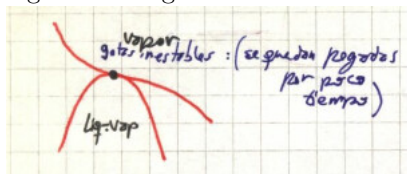 vapor
gotas inestables : (se quedan pegadas
por poco
tiempo)
Líq-vap